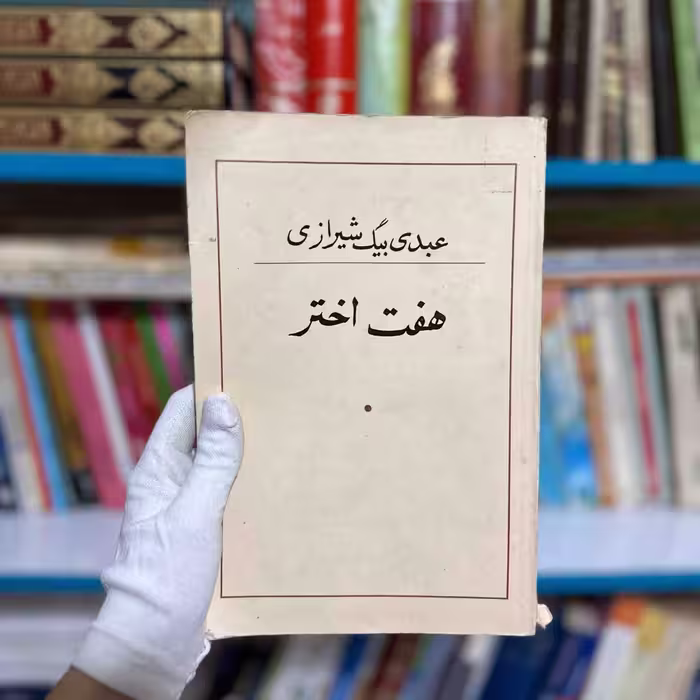 عبدی بیگ شیرازی
هفت اختر